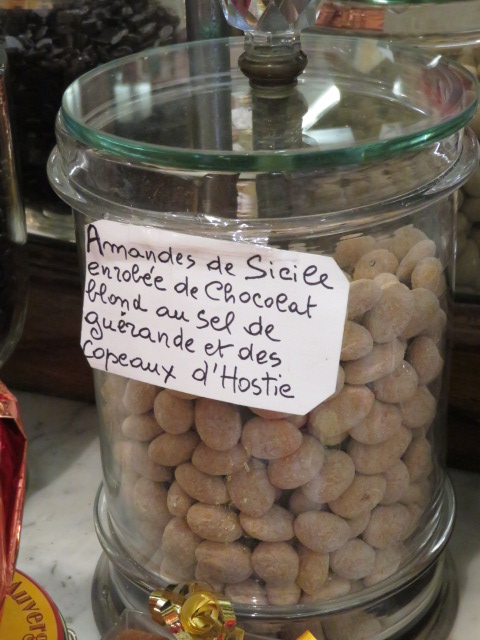 Amandes de Sicile
enrobée de Chocolat
blond au sel de
guérande et des
Copeaux d'Hostie
Auver